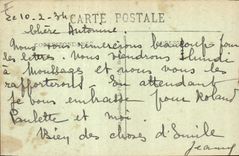 Le 10-2-34
CARTE POSTALE
Chère Antonine.
Nous vous remercions beaucoup pour
les lettres. Nous viendrons lundi
à Moussages et nous vous les
rapporterons. En attendant
je vous embrasse pour Roland
Paulette et moi.
Bien des choses d'Emile
Jeanny